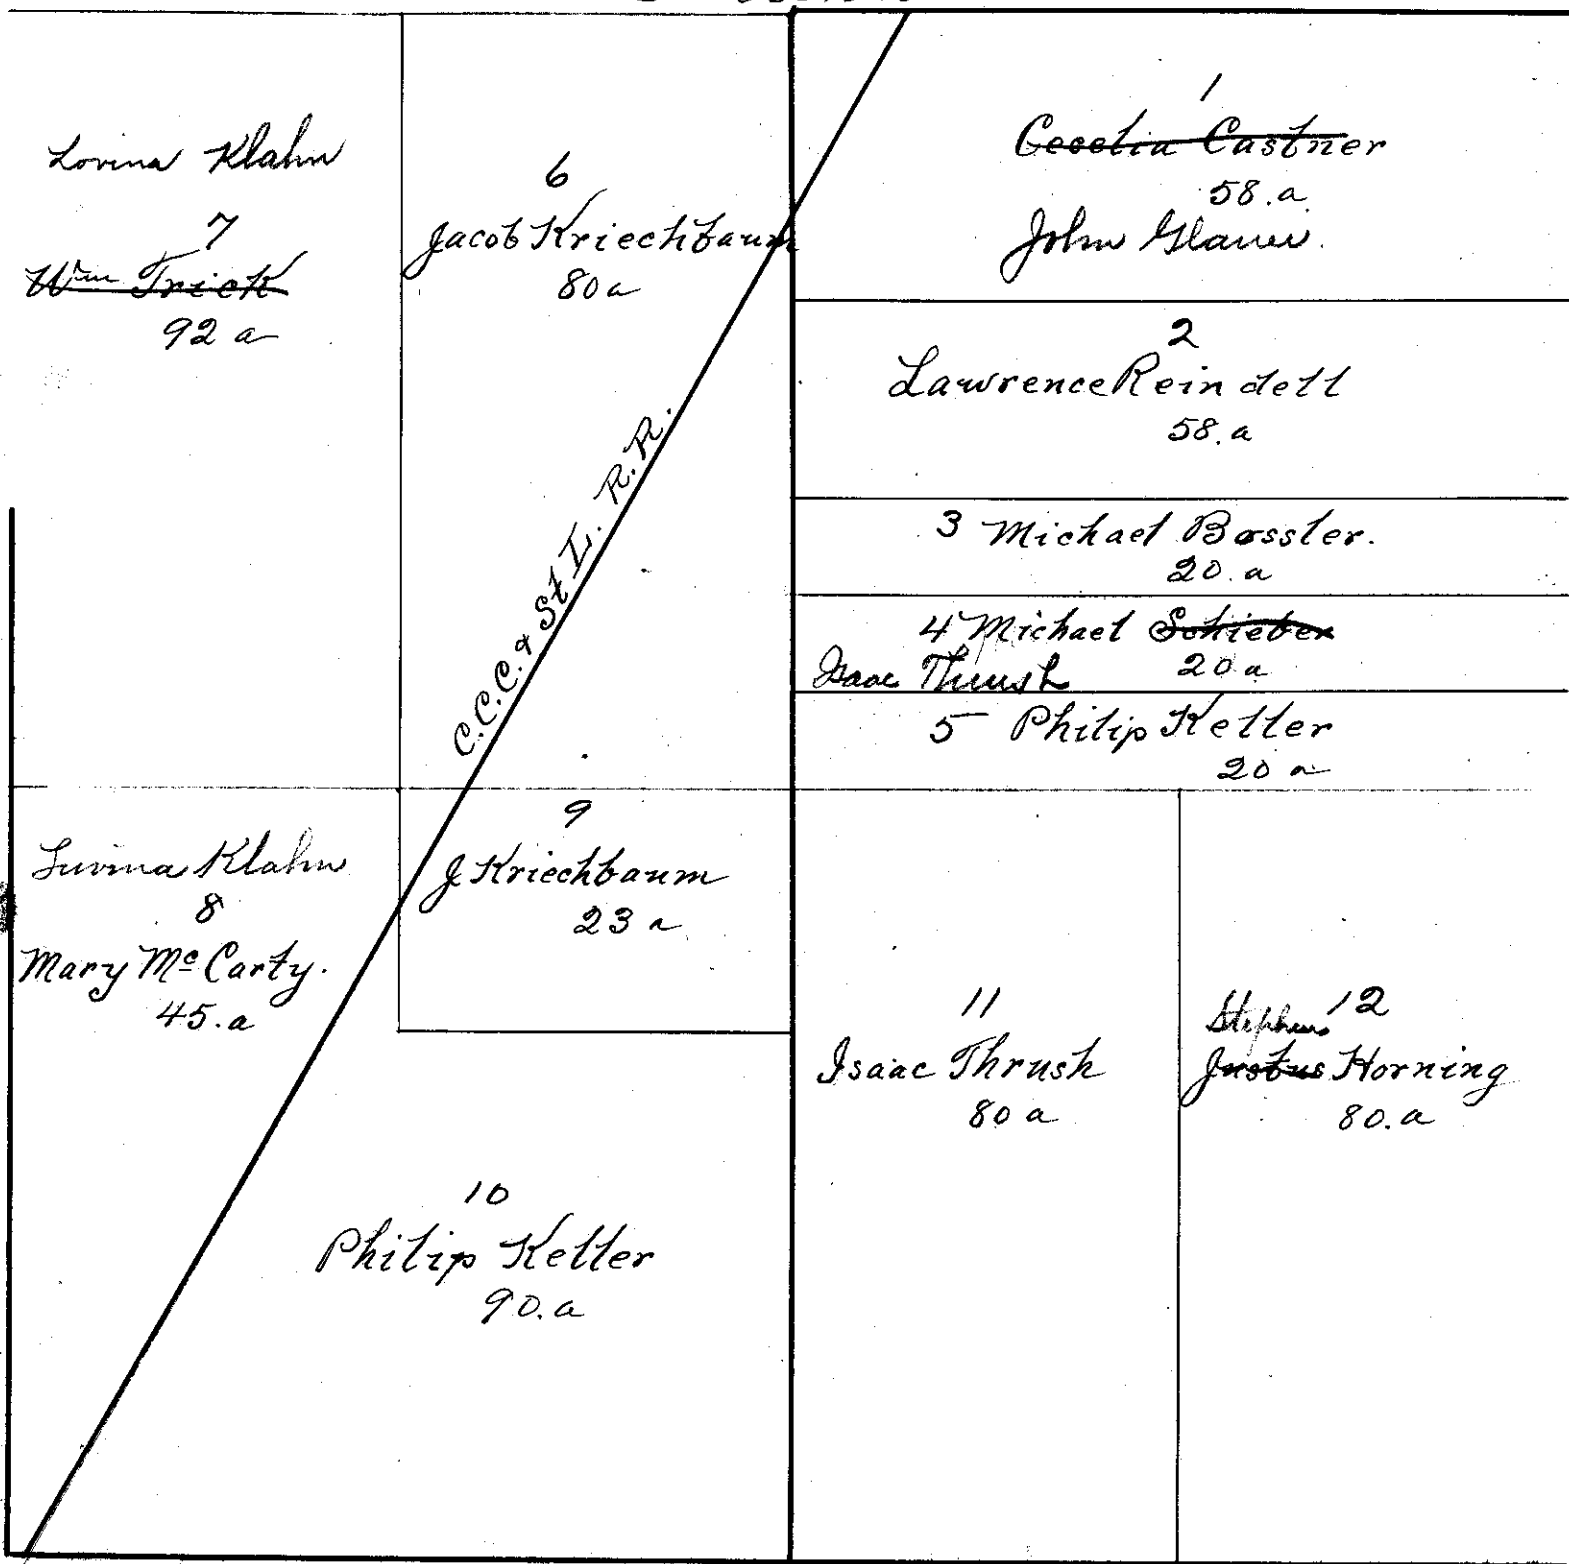 Lovina Klahn
7
Wm Trick
92 a
6
Jacob Kriechbaum
80 a
1
Cecelia Castner
58. a
John Glauer.
2
Lawrence Reindell
58. a
3 Michael Bossler.
20. a
4 Michael Schieber
Isaac Thrush 20 a
5 Philip Keller
20 a
C.C.C. & St L. R.R.
Luvina Klahn
8
Mary Mc Carty.
45. a
9
J Kriechbaum
23 a
10
Philip Keller
90. a
11
Isaac Thrush
80 a
12
Stephens
Justus Horning
80. a